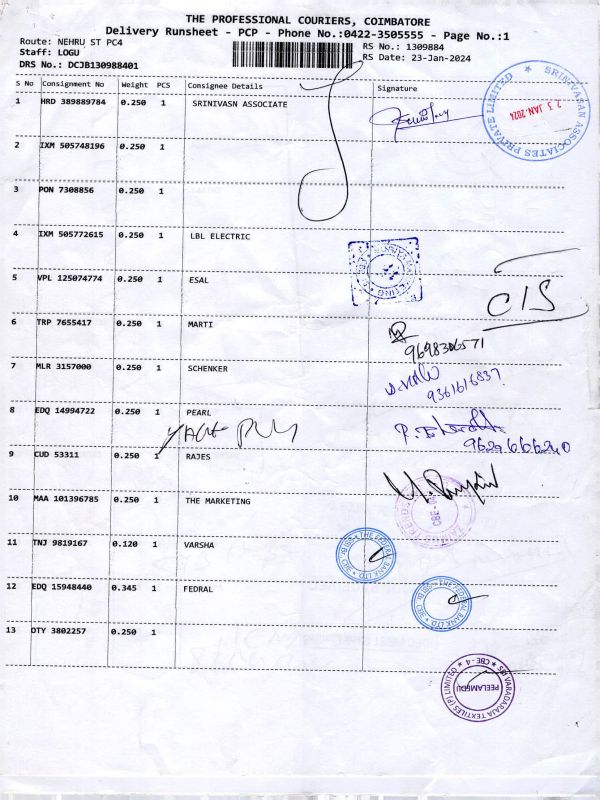 THE PROFESSIONAL COURIERS, COIMBATORE
Delivery Runsheet - PCP - Phone No.:0422-3505555 - Page No.:1
Route: NEHRU ST PC4
RS No.: 1309884
Staff: LOGU
RS Date: 23-Jan-2024
DRS No.: DCJB130988401
S No Consignment No Weight PCS Consignee Details Signature
1 HRD 389889784 0.250 1 SRINIVASN ASSOCIATE
SRINIVASAN ASSOCIATES PRIVATE LIMITED
23 JAN 2024
2 IXM 505748196 0.250 1
3 PON 7308856 0.250 1
4 IXM 505772615 0.250 1 LBL ELECTRIC
5 VPL 125074774 0.250 1 ESAL
CIS
6 TRP 7655417 0.250 1 MARTI
9698306571
7 MLR 3157000 0.250 1 SCHENKER
9361616837
8 EDQ 14994722 0.250 1 PEARL
9629666240
9 CUD 53311 0.250 1 RAJES
10 MAA 101396785 0.250 1 THE MARKETING
11 TNJ 9819167 0.120 1 VARSHA
THE FEDERAL BANK LTD
12 EDQ 15948440 0.345 1 FEDRAL
THE FEDERAL BANK LTD
13 OTY 3802257 0.250 1
SRI VARADARAJA TEXTILES (P) LIMITED ★ CBE - 4 ★
PEELAMEDU